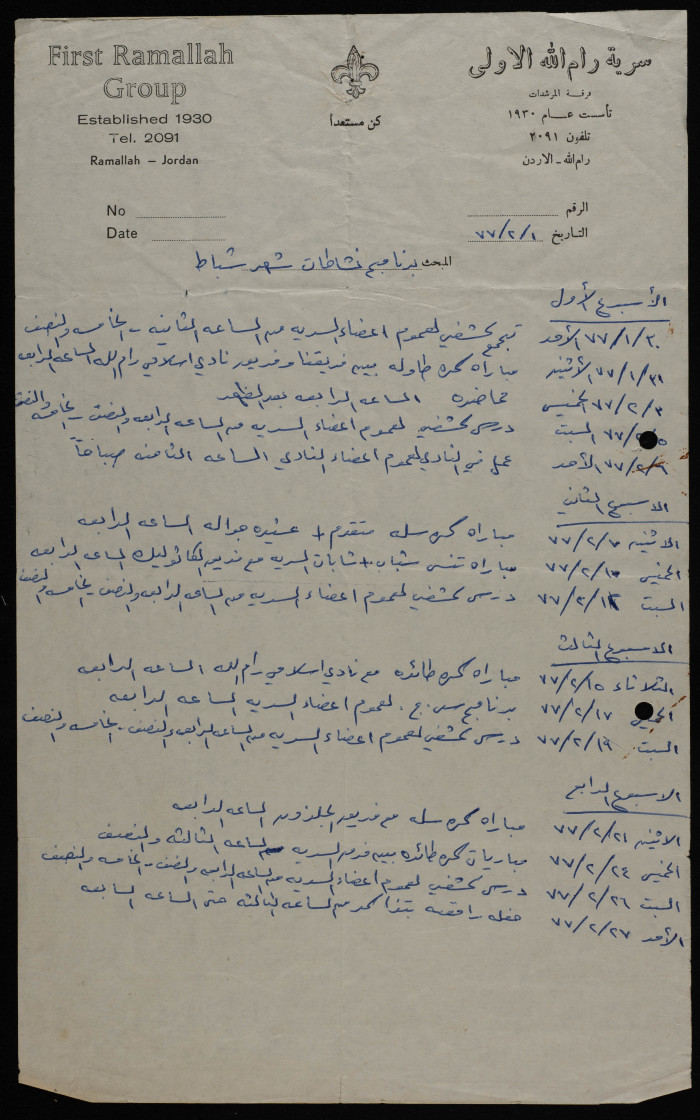 First Ramallah
Group
Established 1930
Tel. 2091
Ramallah – Jordan
كن مستعداً
سرية رام الله الاولى
فرقة المرشدات
تأسست عام ١٩٣٠
تلفون ٢٠٩١
رام الله - الاردن
No
Date
الرقم
التاريخ ٧٧/٢/١
المبحث برنامج نشاطات شهر شباط
الأسبوع الأول
٧٧/١/٣٠ الأحد تجمع كشفي لعموم اعضاء السريه من الساعه الثانيه - الخامسه والنصف
٧٧/١/٣١ الأثنين مباراه كره طاوله بين فريقنا وفريق نادي اسلامي رام الله الساعه الرابعه
٧٧/٢/٣ الخميس محاضره الساعه الرابعه بعد الظهر
٧٧/٢/٥ السبت درس كشفي لعموم اعضاء السريه من الساعه الرابعه والنصف - الخامسه والنصف
٧٧/٢/٦ الأحد عمل في النادي لعموم اعضاء النادي الساعه الثامنه صباحاً
الاسبوع الثاني
الاثنين ٧٧/٢/٧ مباراه كره سله متقدم + عشيره جواله الساعه الرابعه
الخميس ٧٧/٢/١٠ مباراه تنس شباب + شابات السريه مع فريق الكاثوليك الساعه الرابعه
السبت ٧٧/٢/١٢ درس كشفي لعموم اعضاء السريه من الساعه الرابعه والنصف - الخامسه والنصف
الاسبوع الثالث
الثلاثاء ٧٧/٢/١٥ مباراه كره طائره مع نادي اسلامي رام الله الساعه الرابعه
الخميس ٧٧/٢/١٧ برنامج س. ج. لعموم اعضاء السريه الساعه الرابعه
السبت ٧٧/٢/١٩ درس كشفي لعموم اعضاء السريه من الساعه الرابعه والنصف - الخامسه والنصف
الاسبوع الرابع
الاثنين ٧٧/٢/٢١ مباراه كره سله مع فريق الجلزون الساعه الرابعه
الخميس ٧٧/٢/٢٤ مباريات كره طائره بين فرق السريه الساعه الثالثه والنصف
السبت ٧٧/٢/٢٦ درس كشفي لعموم اعضاء السريه من الساعه الرابعه والنصف - الخامسه والنصف
الأحد ٧٧/٢/٢٧ حفله راقصه بتذاكر من الساعه الثالثه حتى الساعه السابعه